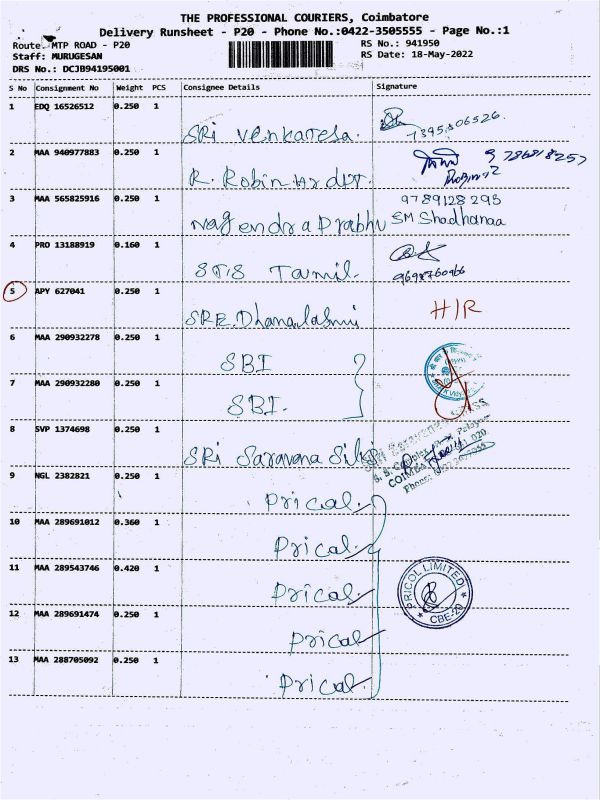 THE PROFESSIONAL COURIERS, Coimbatore
Delivery Runsheet - P20 - Phone No.:0422-3505555 - Page No.:1
Route: MTP ROAD - P20 RS No.: 941950
Staff: MURUGESAN RS Date: 18-May-2022
DRS No.: DCJB94195001
S No Consignment No Weight PCS Consignee Details Signature
1 EDQ 16526512 0.250 1 SRi Venkatesa.
2 MAA 940977883 0.250 1 R. Robin
3 MAA 565825916 0.250 1 Nagendra Prabhu 9789128295
SM Shadhanaa
4 PRO 13188919 0.160 1 STS Tamil.
5 APY 627041 0.250 1 SRE. H/R
6 MAA 290932278 0.250 1 SBI
7 MAA 290932280 0.250 1 SBI.
8 SVP 1374698 0.250 1 SRi Saravana
9 NGL 2382821 0.250 1 Prical
10 MAA 289691012 0.360 1 Prical
11 MAA 289543746 0.420 1 Prical
PRICOL LIMITED
CBE-20
12 MAA 289691474 0.250 1 Prical
13 MAA 288705092 0.250 1 Prical